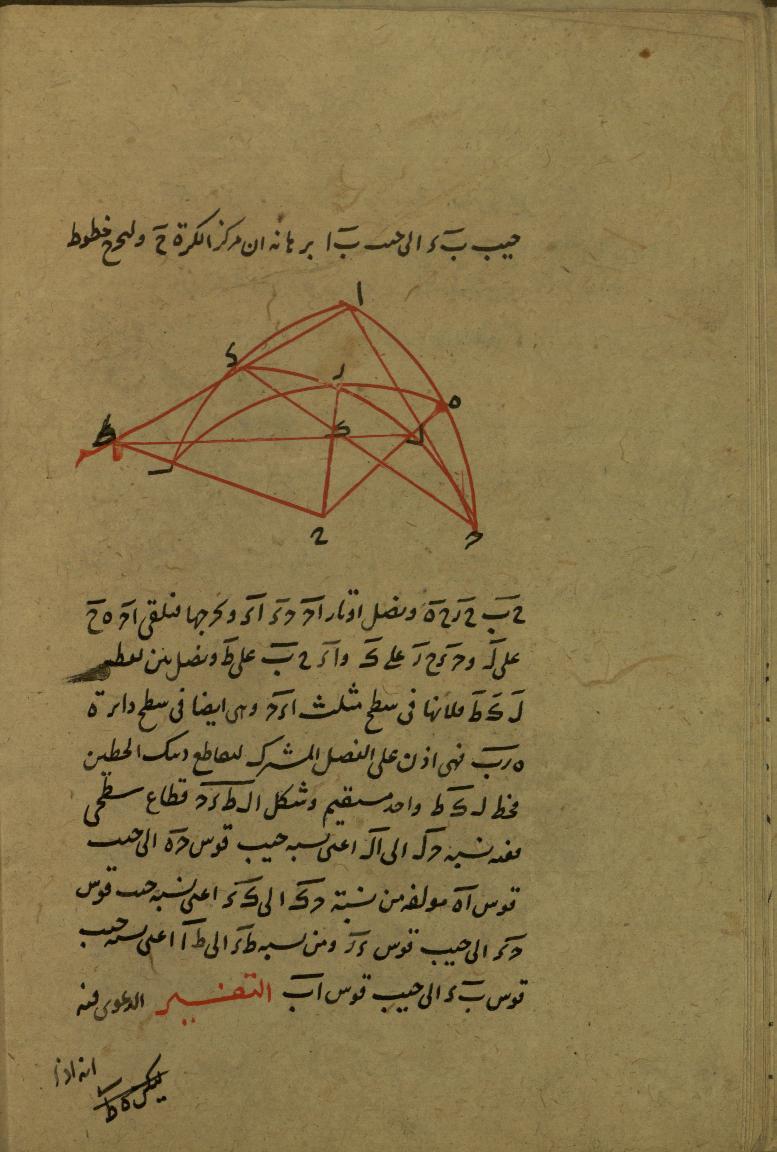 جيب بَ ءَ الى جيب بَ ا برهانه ان مركز الكرة حَ ولنخرج خطوط
ا
ء
ر
ه
ط
ب
ك
ل
ح
ج
حَ بَ حَ رَ حَ هَ ونصل اوتار اَجَ جَ ءَ اَ ءَ ونخرجها فتلقى اَجَ هَ حَ
على لَ وجَ ءَ حَ رَ على كَ واَ ءَ حَ بَ على طَ ونصل بين
لَ كَ طَ فلانها فى سطح مثلث اَ ءَ جَ وهى ايضا فى سطح دائرة
هَ رَ بَ فهى اذن على الفصل المشترك لتقاطع ذينك السطحين
فخط لَ كَ طَ واحد مستقيم وشكل اَ لَ طَ ءَ جَ قطاع سطحى
ففيه نسبة جَ لَ الى اَ لَ اعنى نسبة جيب قوس جَ هَ الى جيب
قوس اَ هَ مولفة من نسبة جَ كَ الى كَ ءَ اعنى نسبة جيب قوس
جَ رَ الى جيب قوس ءَ رَ ومن نسبة طَ ءَ الى طَ اَ اعنى نسبة جيب
قوس بَ ءَ الى جيب قوس اَ بَ التفسير الدعوى فيه
انه اذا